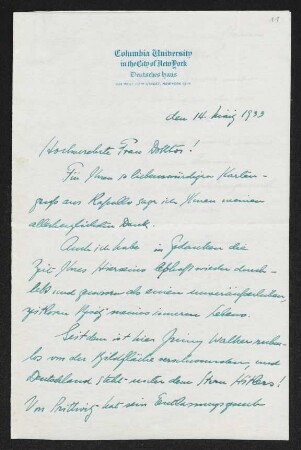 11
Columbia University
in the City of New York
Deutsches Haus
den 14. März 1933
Hochverehrte Frau Doktor!
Für Ihren so liebenswürdigen Karten-
gruß aus Rapallo sage ich Ihnen meinen
allerherzlichsten Dank.
Auch ich habe in Gedanken die
Zeit Ihres Hierseins oft wieder durch-
lebt und genossen als einen
meines inneren Lebens.
Seitdem ist hier Jimmy Walker
von der Bildfläche verschwunden, und
Deutschland steht unter dem Stern Hitlers!
Von Prittwitz hat sein Entlassungsgesuch